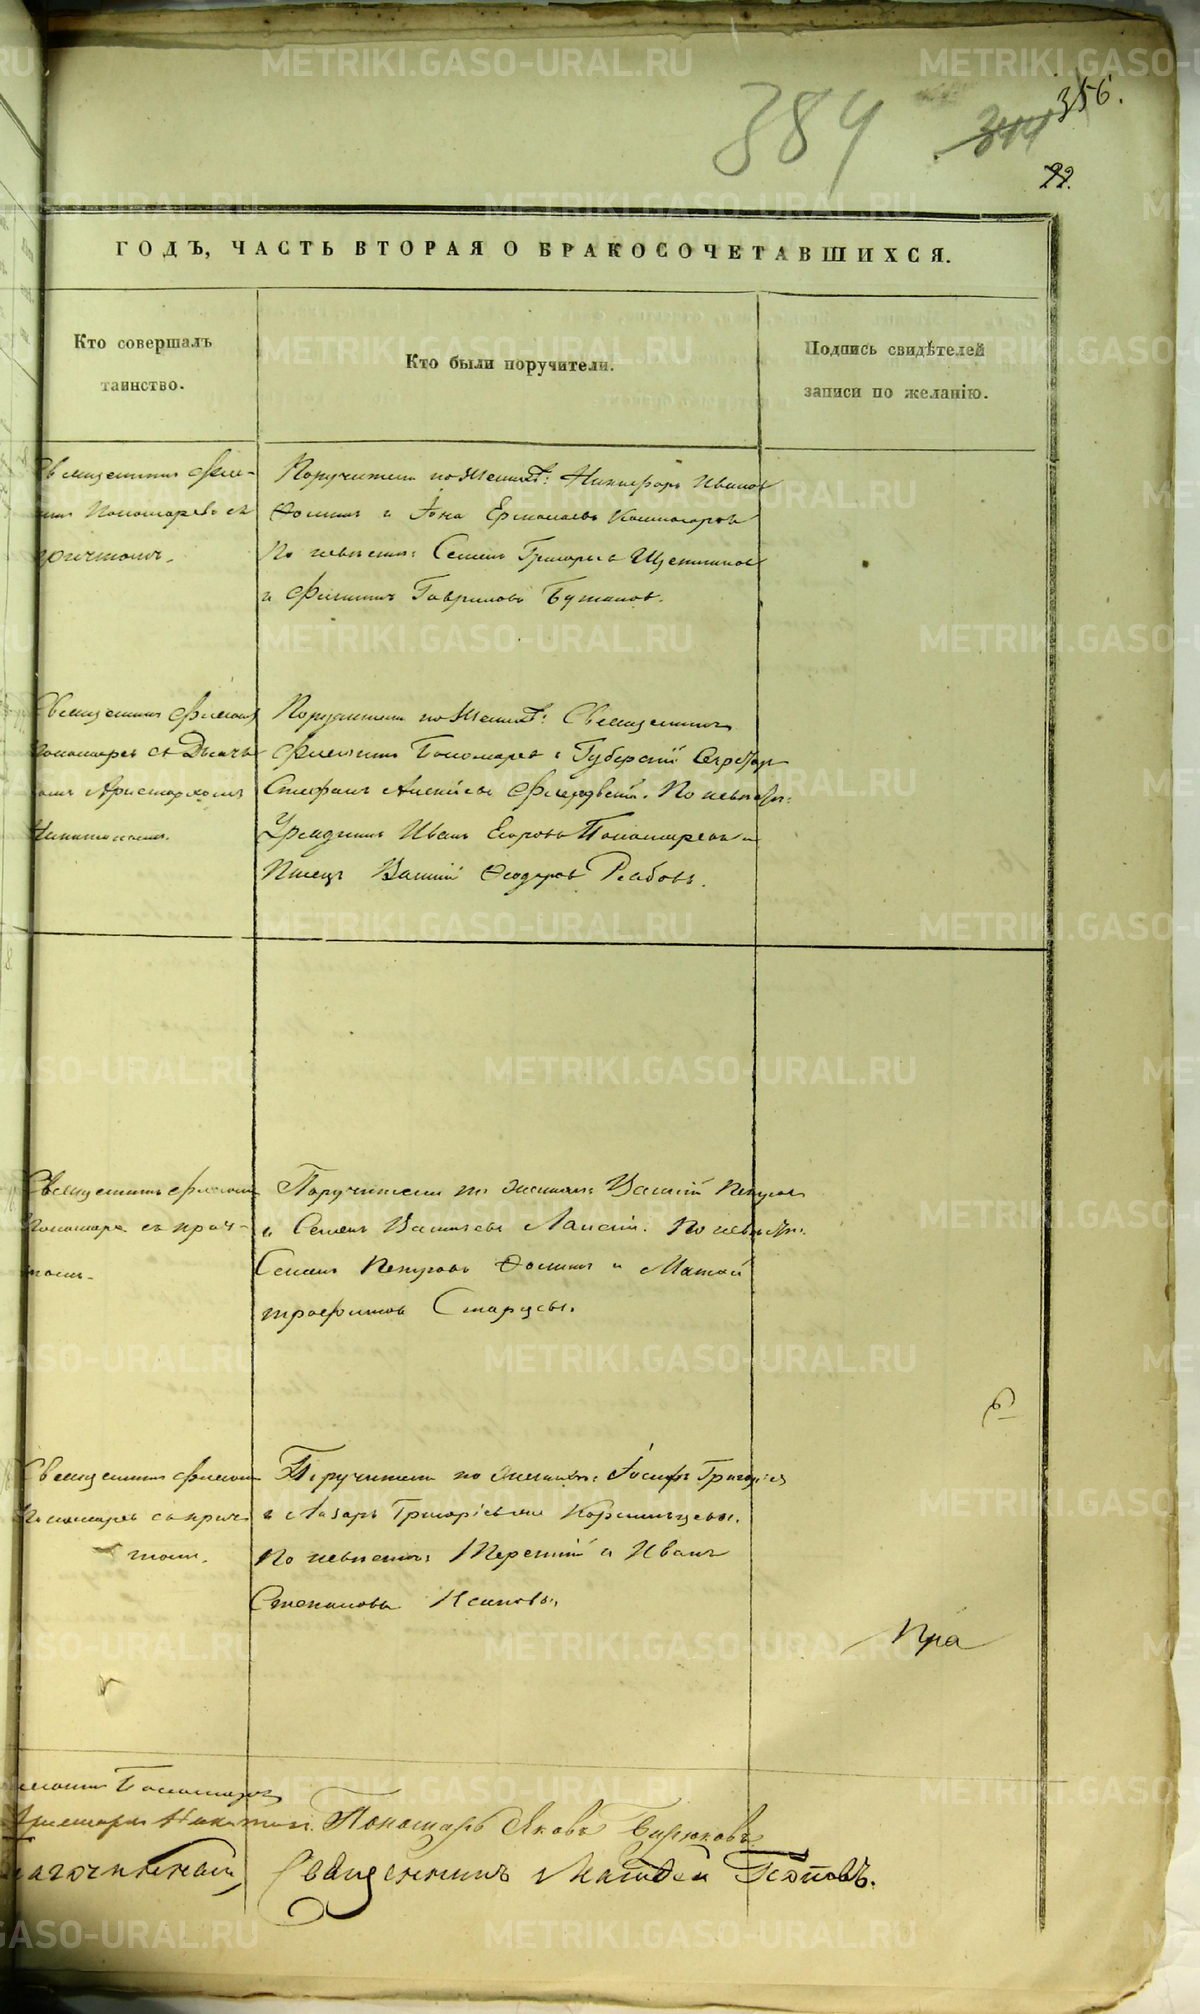 384
344
356.
22.
ГОДЪ, ЧАСТЬ ВТОРАЯ О БРАКОСОЧЕТАВШИХСЯ.
Кто совершалъ
таинство.
Кто были поручители.
Подпись свидѣтелей
записи по желанію.
Священникъ
Пономаревъ съ
причтомъ.
Поручители по жених: Никифоръ Иванов
Ѳоминъ и Іона Ермолаевъ
По невѣстѣ: Семенъ Григорьев Щетников
и Филиппъ Гавриловъ
Священникъ
Пономарев съ Дьяч
комъ Аристархомъ
Поручители по жених: Священникъ
Пономарев и Губерскій Секретарь
Стефанъ Алексіевъ. По невѣстѣ:
Урядникъ Иванъ Егоровъ Пономарев и
Писецъ Василій Ѳеодоров Рябовъ.
Священникъ
Пономарев съ прич-
томъ.
Поручители по жених: Василій Петров
и Семенъ Васильевъ. По невѣстѣ:
Семенъ Петровъ Ѳоминъ и Матвей
Трофимов Старцевы.
Священникъ
Пономарев съ прич
томъ.
Поручители по жених: Іосифъ Григорьев
и Лазарь Григорьевы Кормильцевы.
По невѣстѣ: Терентій и Иванъ
Степановы Исаковы.
Пра
Пономарев
Пономарь Яковъ Бирюковъ
Благочинный, Священникъ Матвей Поповъ.
METRIKI.GASO-URAL.RU